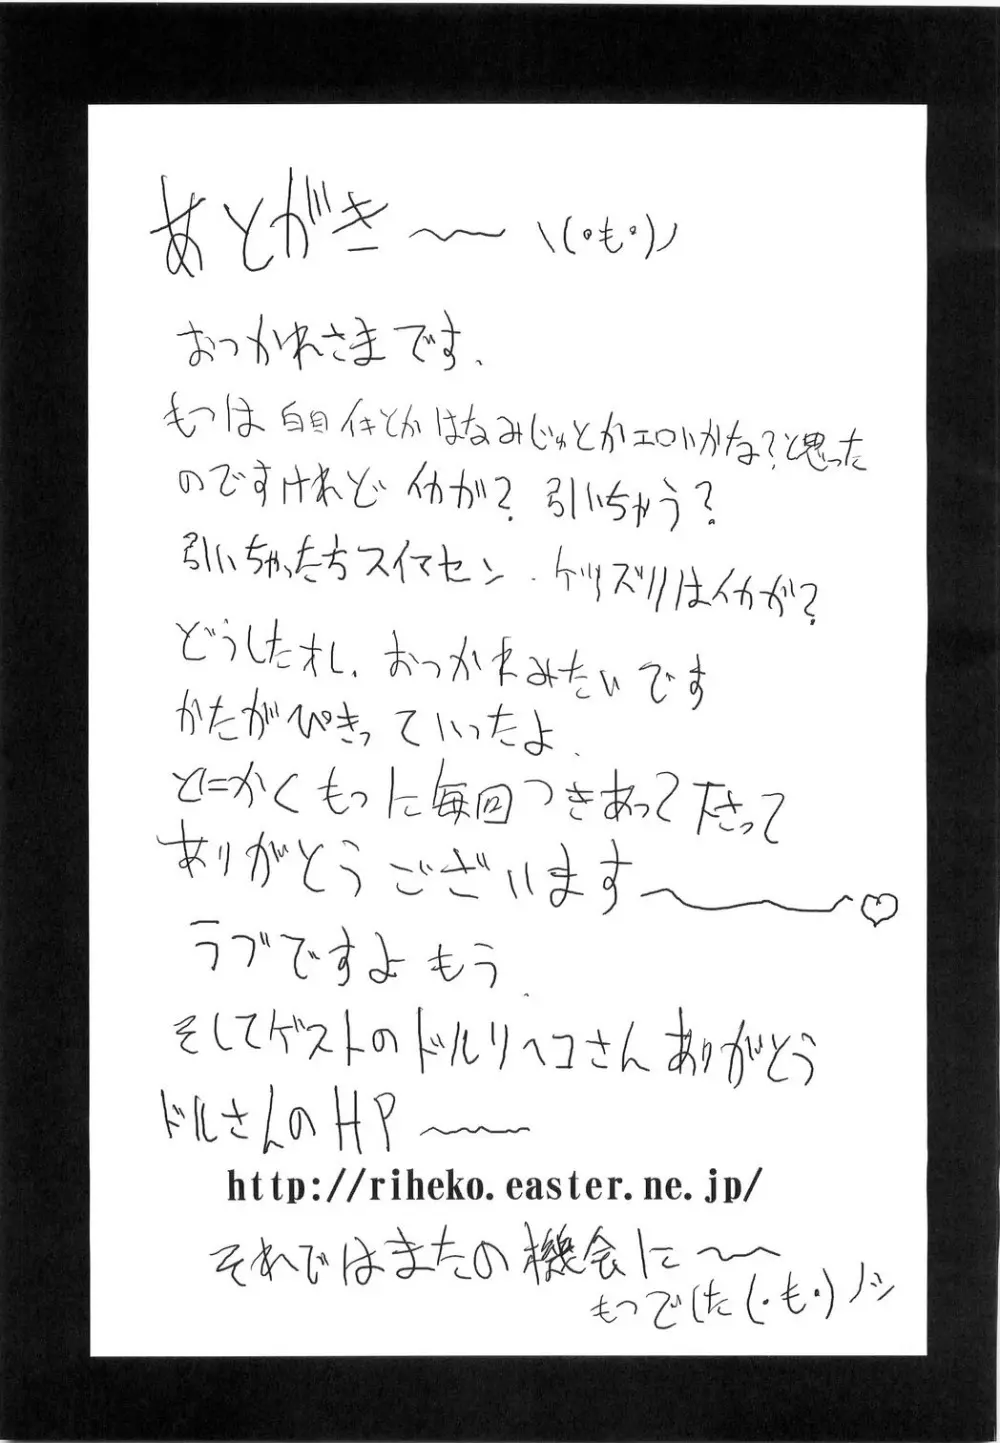 あとがき〜 \(・も・)ノ
おつかれさまです.
もつは 白目イキとかはなみじゅとかエロいかな?と思った
のですけれど イカが? 引いちゃう?
引いちゃったらスイマセン. ケツズリはイカが?
どうしたオレ. おつかれみたいです
かたがぴきっ ていったよ.
とにかくもつに毎回つきあって下さって
ありがとうございます〜♡
ラブですよもう.
そしてゲストのドルリヘコさんありがとう
ドルさんのHP〜
http://riheko.easter.ne.jp/
それではまたの機会に〜
もつでした(・も・)ノシ